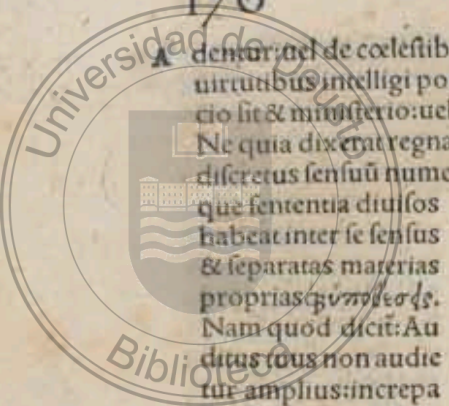 A dentur: uel de cœlestib
uirtutibus intelligi po
cio sit & ministerio: uel
Ne quia dixerat regna
discretus sensuũ nume
que sententia diuisos
habeat inter se sensus
& separatas materias
proprias
Nam quod dicit: Au
ditus tuus non audie
tur amplius: increpa
Universidad de Deusto
Biblioteca